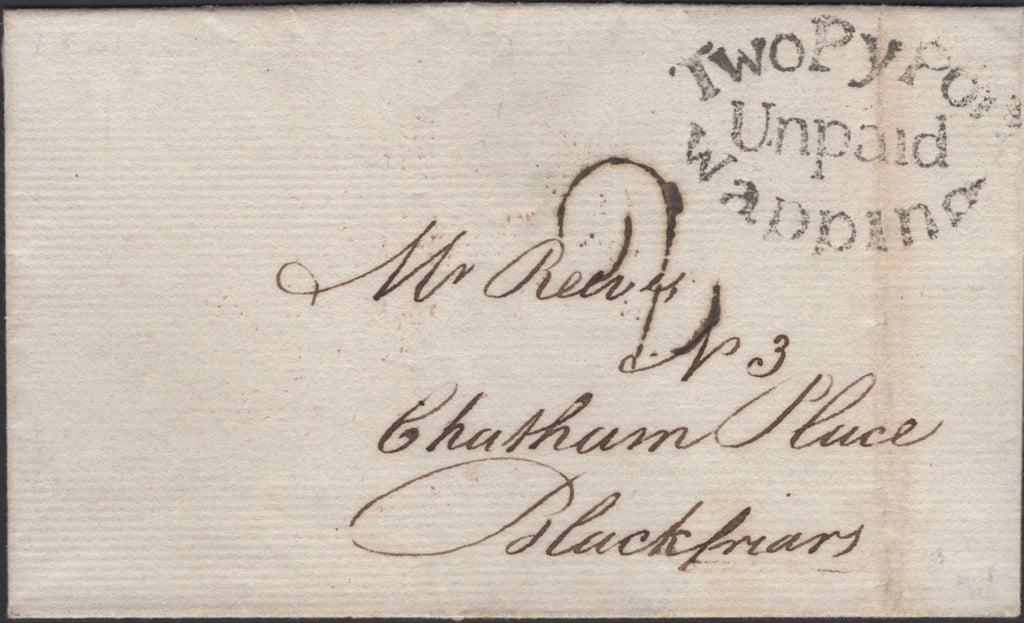 TwoPyPost
Unpaid
Wapping
2
Mr Reeves
No 3
Chatham Place
Blackfriars